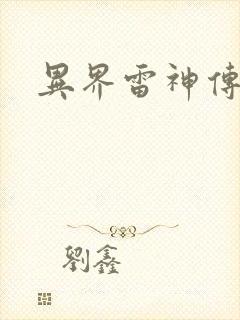 異界雷神傳
劉鑫